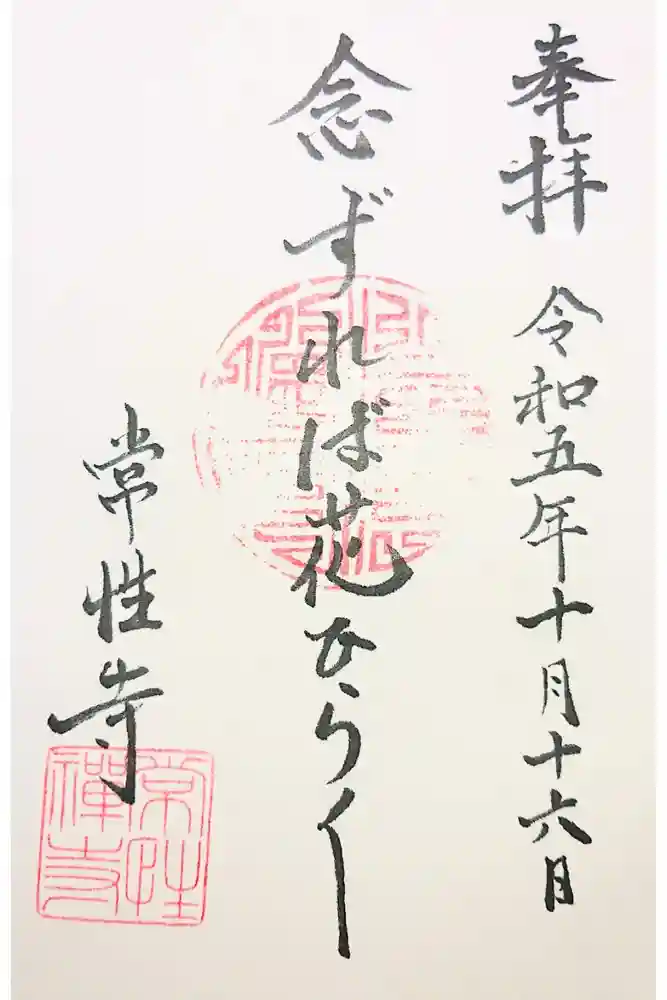 奉拝 令和五年十月十六日
念ずれば花ひらく
常性寺
常性禅寺